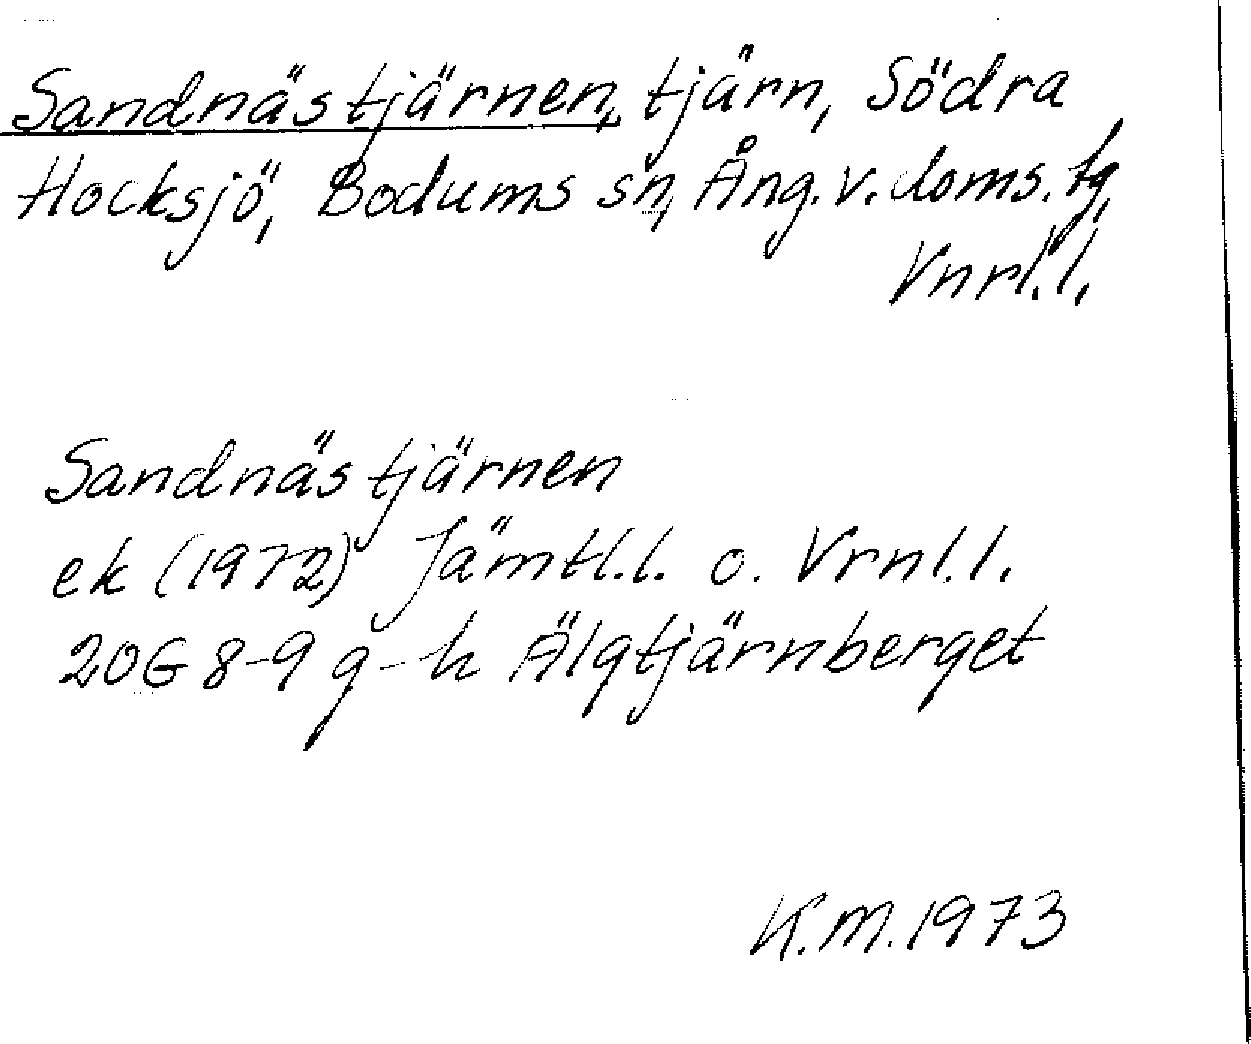 Sandnästjärnen, tjärn, Södra
Hocksjö, Bodums sn, Ång. v. doms. tg,
Vnrl. l.
Sandnästjärnen
ek (1972) Jämtl. l. o. Vrnl. l.
20G 8-9 g-h Älgtjärnberget
K.M. 1973